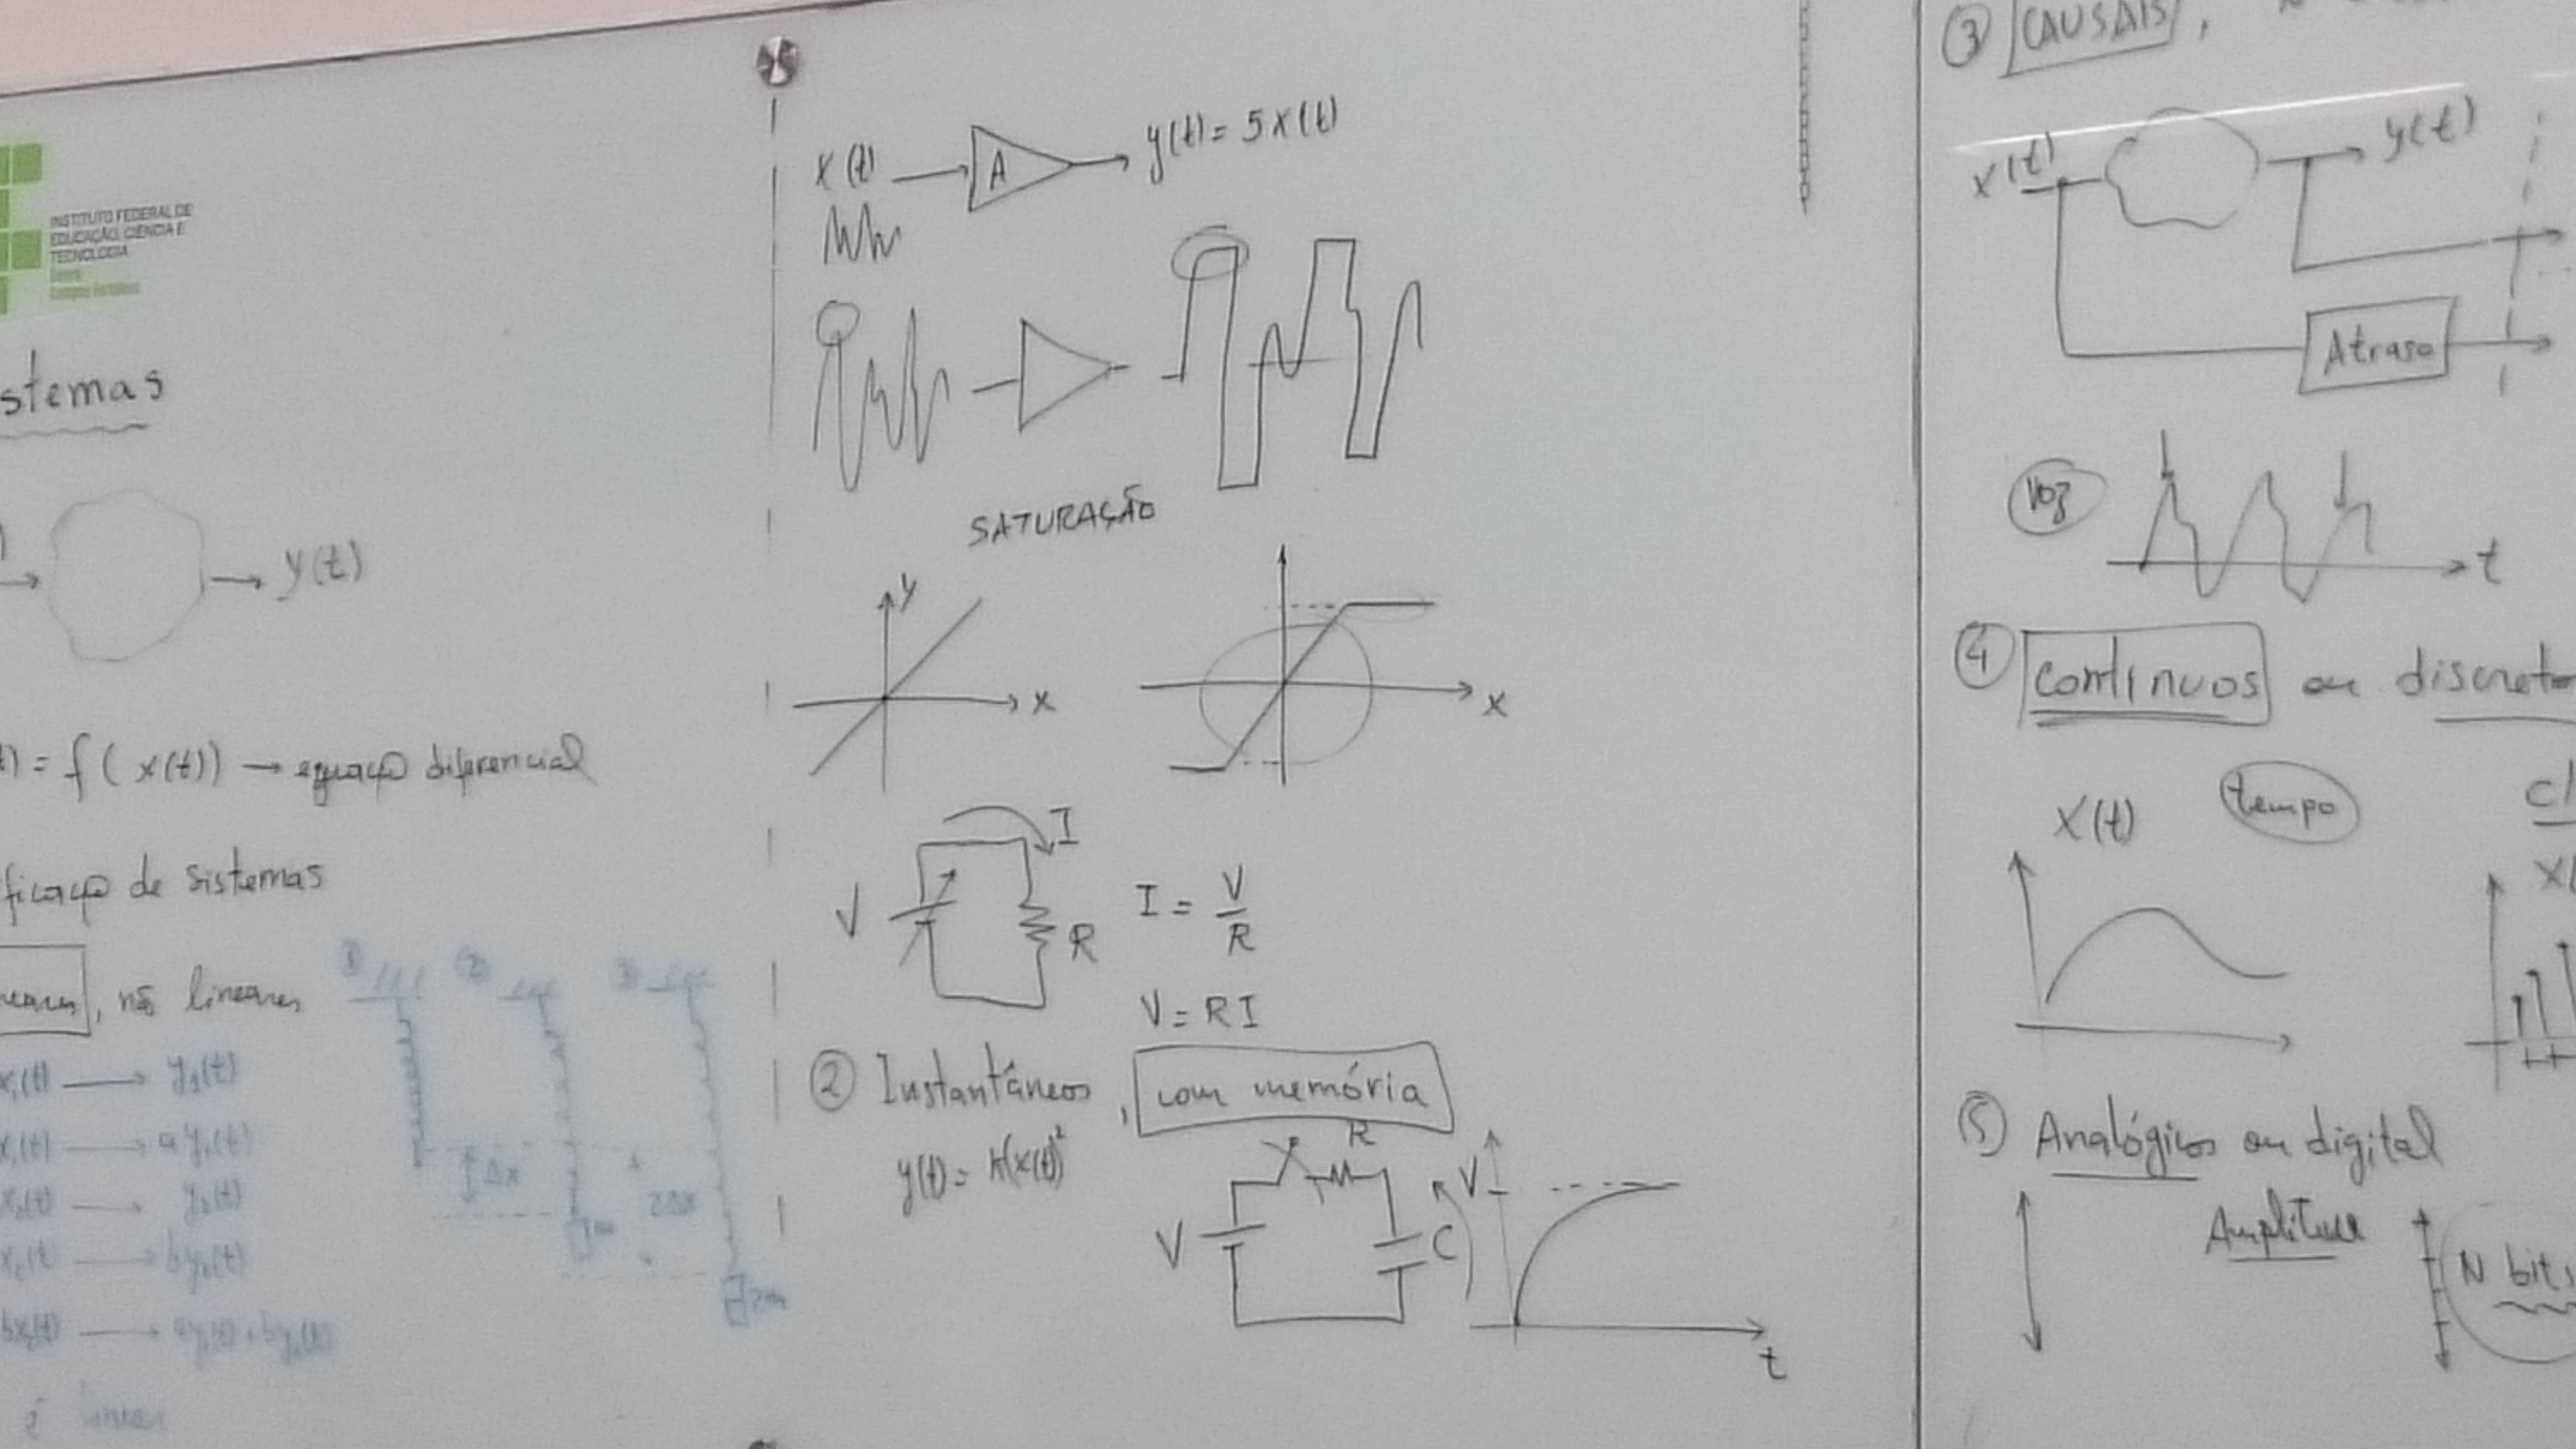 INSTITUTO FEDERAL DE
EDUCAÇÃO, CIÊNCIA E
TECNOLOGIA
stemas
y(t)
) = f ( x(t)) → equação diferencial
ficação de sistemas
, não lineares
1) 2) 3)
x1(t) → y1(t)
x1(t) → a y1(t)
x2(t) → y2(t)
x2(t → by2(t)
bx2(t) → ay1(t)+by2(t)
é linear
Δx
2Δx
x(t)
A
y(t) = 5x(t)
SATURAÇÃO
y
x
x
I
V
R
I = V/R
V = RI
② Instantâneos, com memória
R
V
C
V
t
③ CAUSAIS,
x(t)
y(t)
Atraso
Voz
t
④ contínuos ou discreto
X(t)
tempo
⑤ Analógicos ou digital
Amplitude
N bits